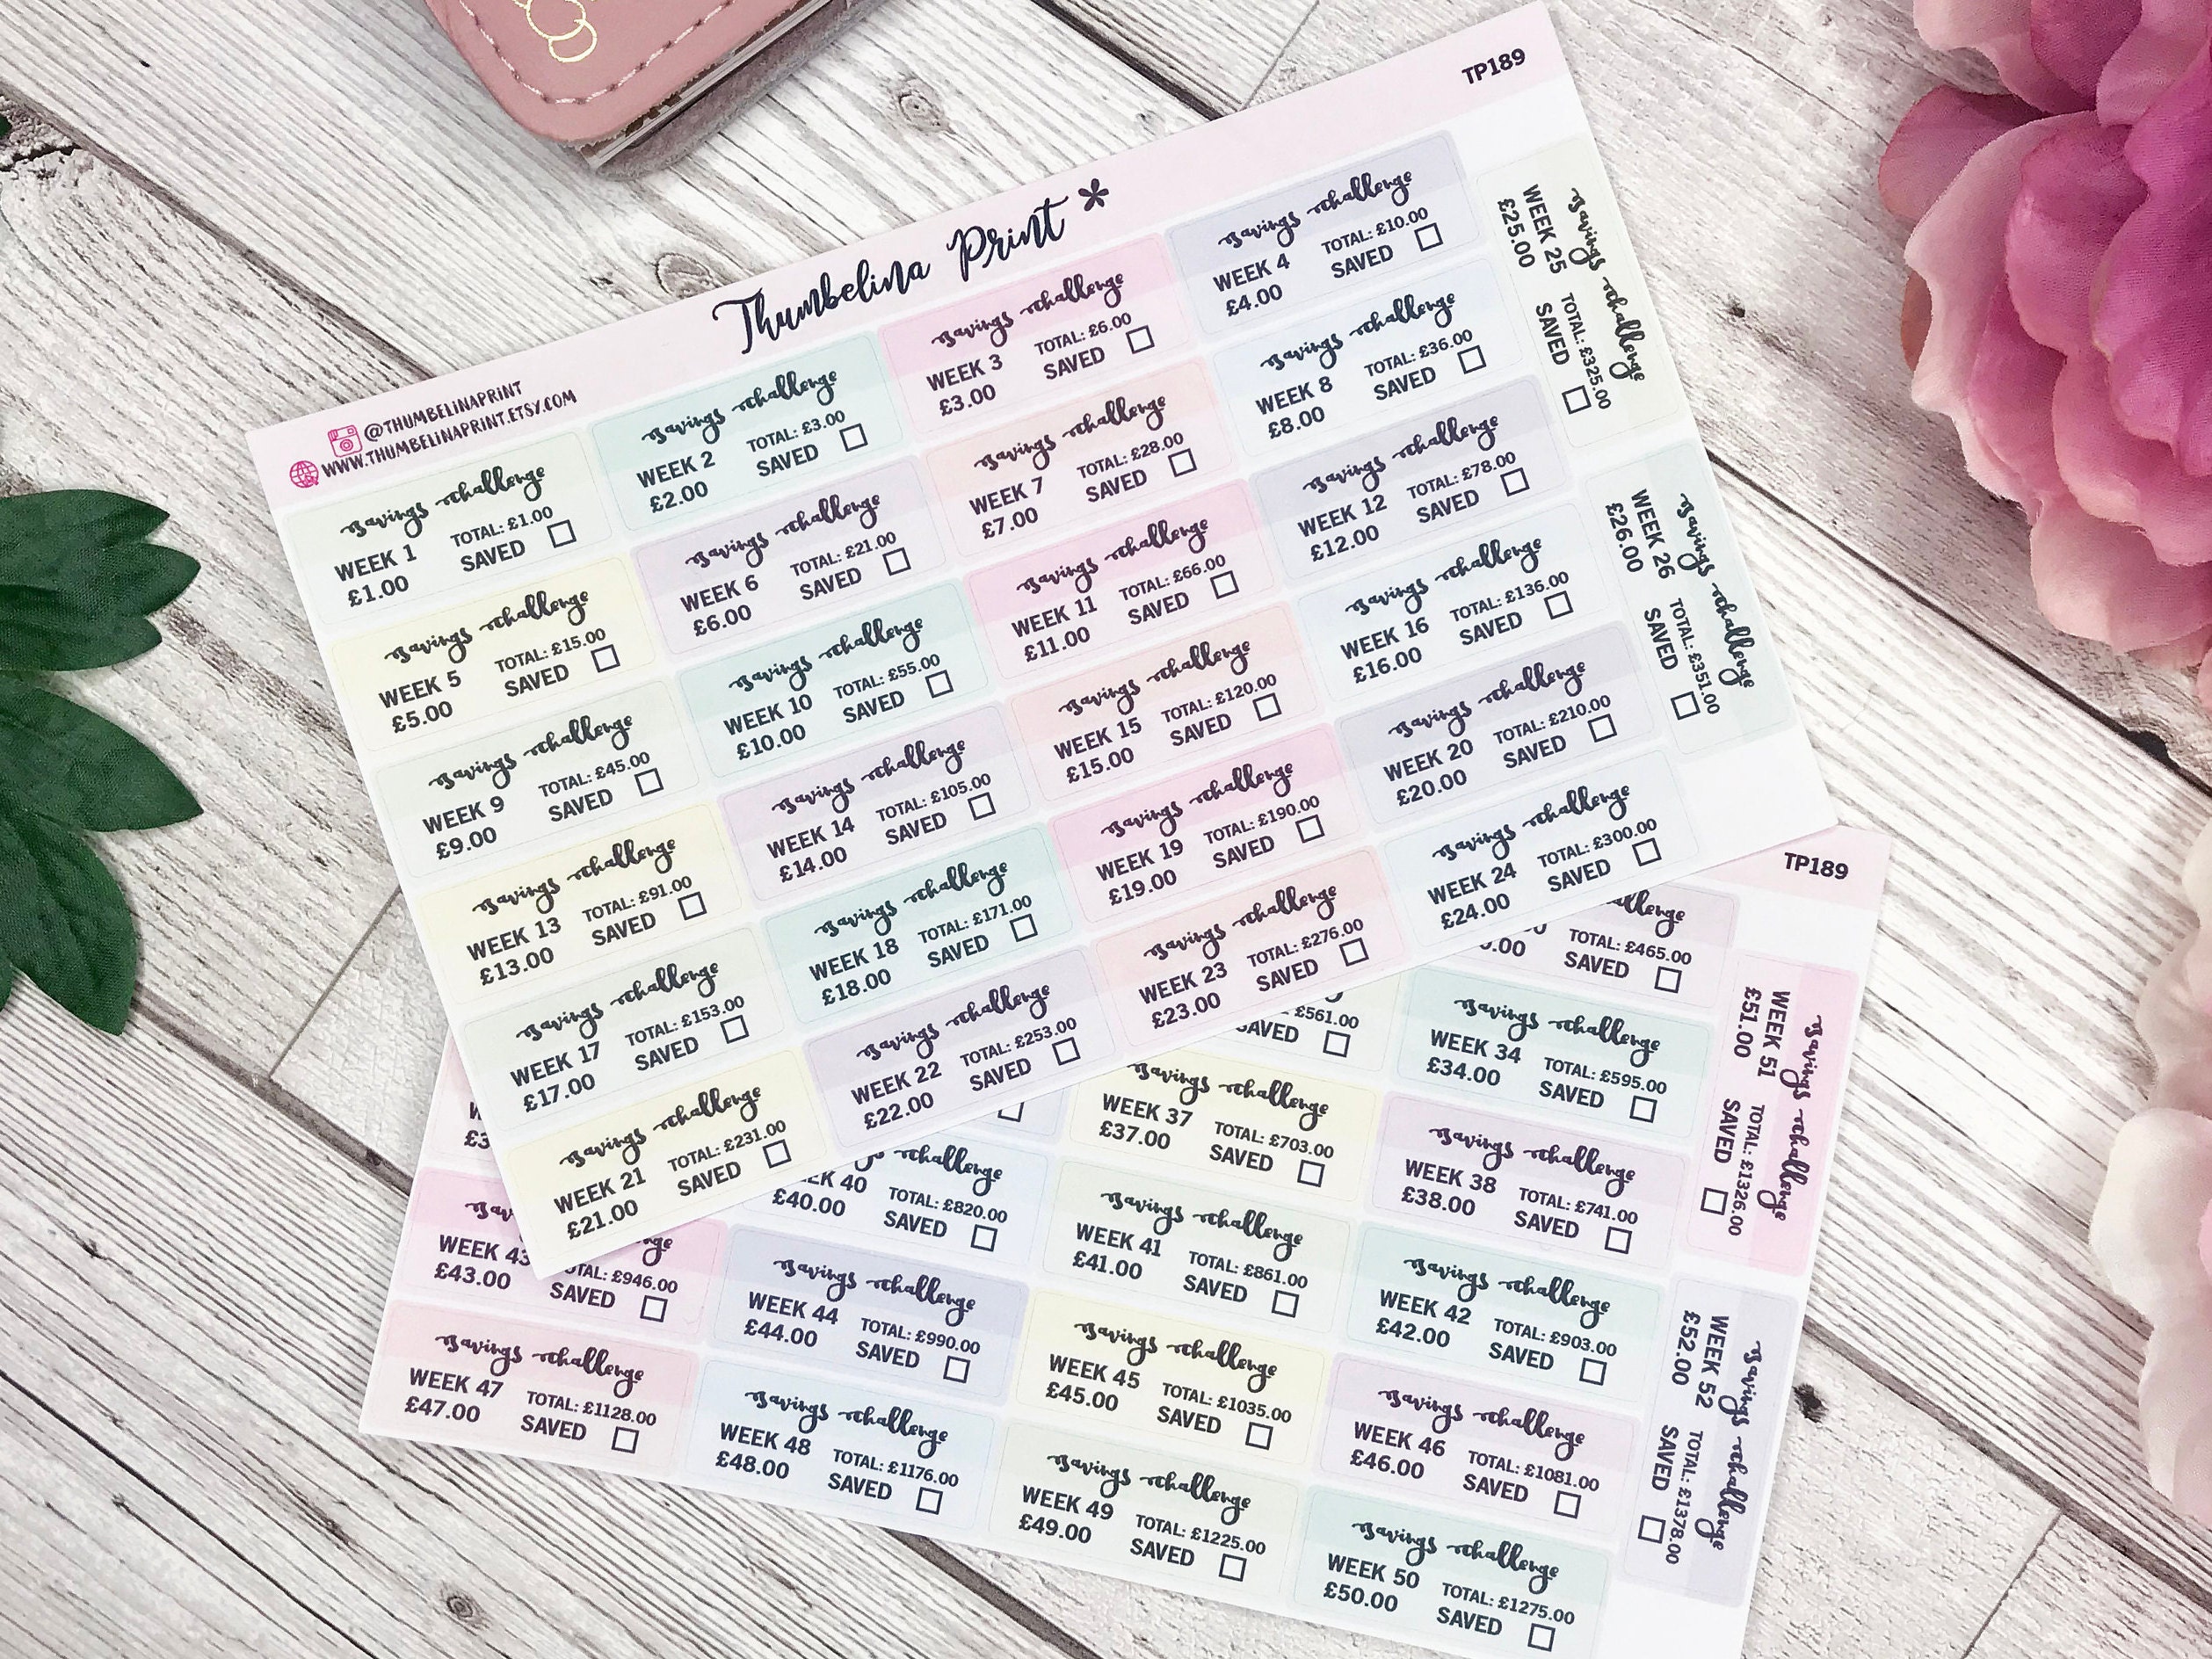 TP189
Thumbelina Print
@THUMBELINAPRINT
WWW.THUMBELINAPRINT.ETSY.COM
Savings Challenge
WEEK 1 TOTAL: £1.00
£1.00 SAVED
Savings Challenge
WEEK 2 TOTAL: £3.00
£2.00 SAVED
Savings Challenge
WEEK 3 TOTAL: £6.00
£3.00 SAVED
Savings Challenge
WEEK 4 TOTAL: £10.00
£4.00 SAVED
Savings Challenge
WEEK 5 TOTAL: £15.00
£5.00 SAVED
Savings Challenge
WEEK 6 TOTAL: £21.00
£6.00 SAVED
Savings Challenge
WEEK 7 TOTAL: £28.00
£7.00 SAVED
Savings Challenge
WEEK 8 TOTAL: £36.00
£8.00 SAVED
Savings Challenge
WEEK 9 TOTAL: £45.00
£9.00 SAVED
Savings Challenge
WEEK 10 TOTAL: £55.00
£10.00 SAVED
Savings Challenge
WEEK 11 TOTAL: £66.00
£11.00 SAVED
Savings Challenge
WEEK 12 TOTAL: £78.00
£12.00 SAVED
Savings Challenge
WEEK 13 TOTAL: £91.00
£13.00 SAVED
Savings Challenge
WEEK 14 TOTAL: £105.00
£14.00 SAVED
Savings Challenge
WEEK 15 TOTAL: £120.00
£15.00 SAVED
Savings Challenge
WEEK 16 TOTAL: £136.00
£16.00 SAVED
Savings Challenge
WEEK 17 TOTAL: £153.00
£17.00 SAVED
Savings Challenge
WEEK 18 TOTAL: £171.00
£18.00 SAVED
Savings Challenge
WEEK 19 TOTAL: £190.00
£19.00 SAVED
Savings Challenge
WEEK 20 TOTAL: £210.00
£20.00 SAVED
Savings Challenge
WEEK 21 TOTAL: £231.00
£21.00 SAVED
Savings Challenge
WEEK 22 TOTAL: £253.00
£22.00 SAVED
Savings Challenge
WEEK 23 TOTAL: £276.00
£23.00 SAVED
Savings Challenge
WEEK 24 TOTAL: £300.00
£24.00 SAVED
Savings Challenge
WEEK 25 TOTAL: £325.00
£25.00 SAVED
Savings Challenge
WEEK 26 TOTAL: £351.00
£26.00 SAVED
TP189
TOTAL: £465.00
SAVED
£561.00
Savings Challenge
WEEK 34 TOTAL: £595.00
£34.00 SAVED
Savings Challenge
WEEK 37 TOTAL: £703.00
£37.00 SAVED
Savings Challenge
WEEK 38 TOTAL: £741.00
£38.00 SAVED
Challenge
40 TOTAL: £820.00
£40.00 SAVED
Savings Challenge
WEEK 41 TOTAL: £861.00
£41.00 SAVED
Savings Challenge
WEEK 42 TOTAL: £903.00
£42.00 SAVED
WEEK 43 £946.00
£43.00 SAVED
Savings Challenge
WEEK 44 TOTAL: £990.00
£44.00 SAVED
Savings Challenge
WEEK 45 TOTAL: £1035.00
£45.00 SAVED
Savings Challenge
WEEK 46 TOTAL: £1081.00
£46.00 SAVED
Savings Challenge
WEEK 47 TOTAL: £1128.00
£47.00 SAVED
Savings Challenge
WEEK 48 TOTAL: £1176.00
£48.00 SAVED
Savings Challenge
WEEK 49 TOTAL: £1225.00
£49.00 SAVED
Savings Challenge
WEEK 50 TOTAL: £1275.00
£50.00 SAVED
Savings Challenge
WEEK 51 TOTAL: £1326.00
£51.00 SAVED
Savings Challenge
WEEK 52 TOTAL: £1378.00
£52.00 SAVED